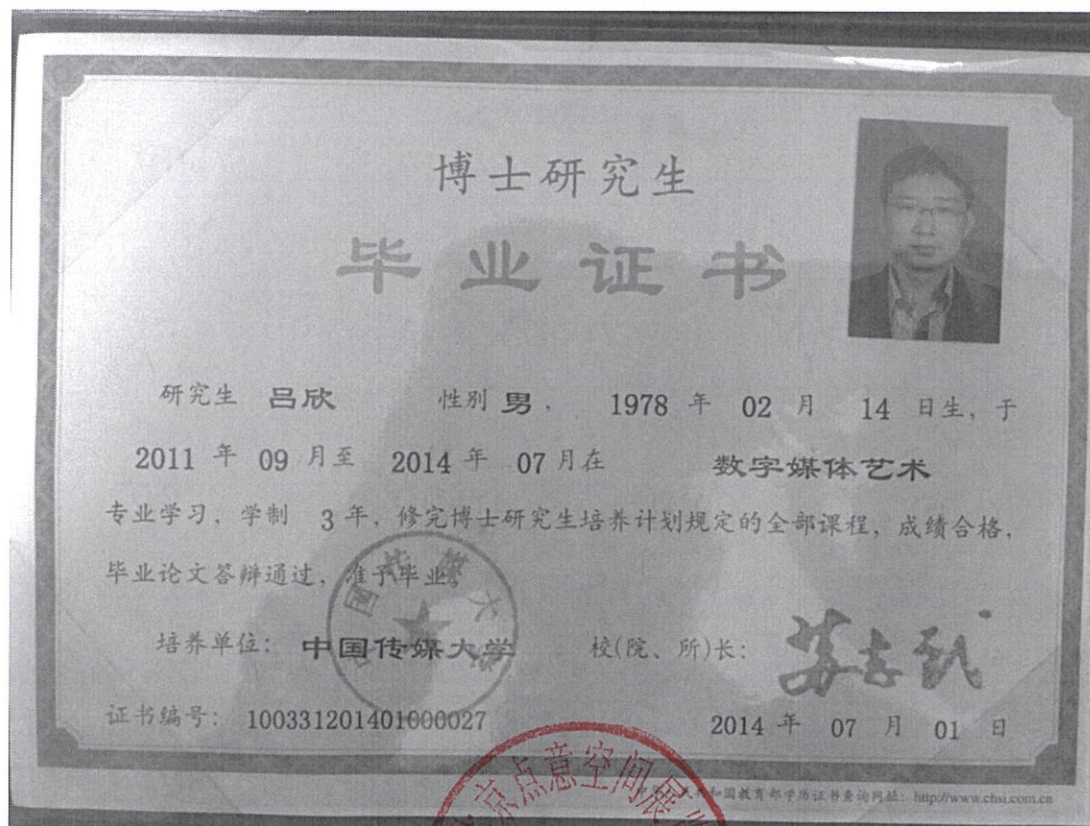 博士研究生
毕业证书
研究生 吕欣 性别 男, 1978 年 02 月 14 日生,于
2011 年 09 月至 2014 年 07 月在 数字媒体艺术
专业学习,学制 3 年,修完博士研究生培养计划规定的全部课程,成绩合格,
毕业论文答辩通过,准予毕业。
培养单位: 中国传媒大学 校(院、所)长: 苏志武
证书编号: 100331201401000027 2014 年 07 月 01 日
北京点意空间展览
人民共和国教育部学历证书查询网址: http://www.chsi.com.cn